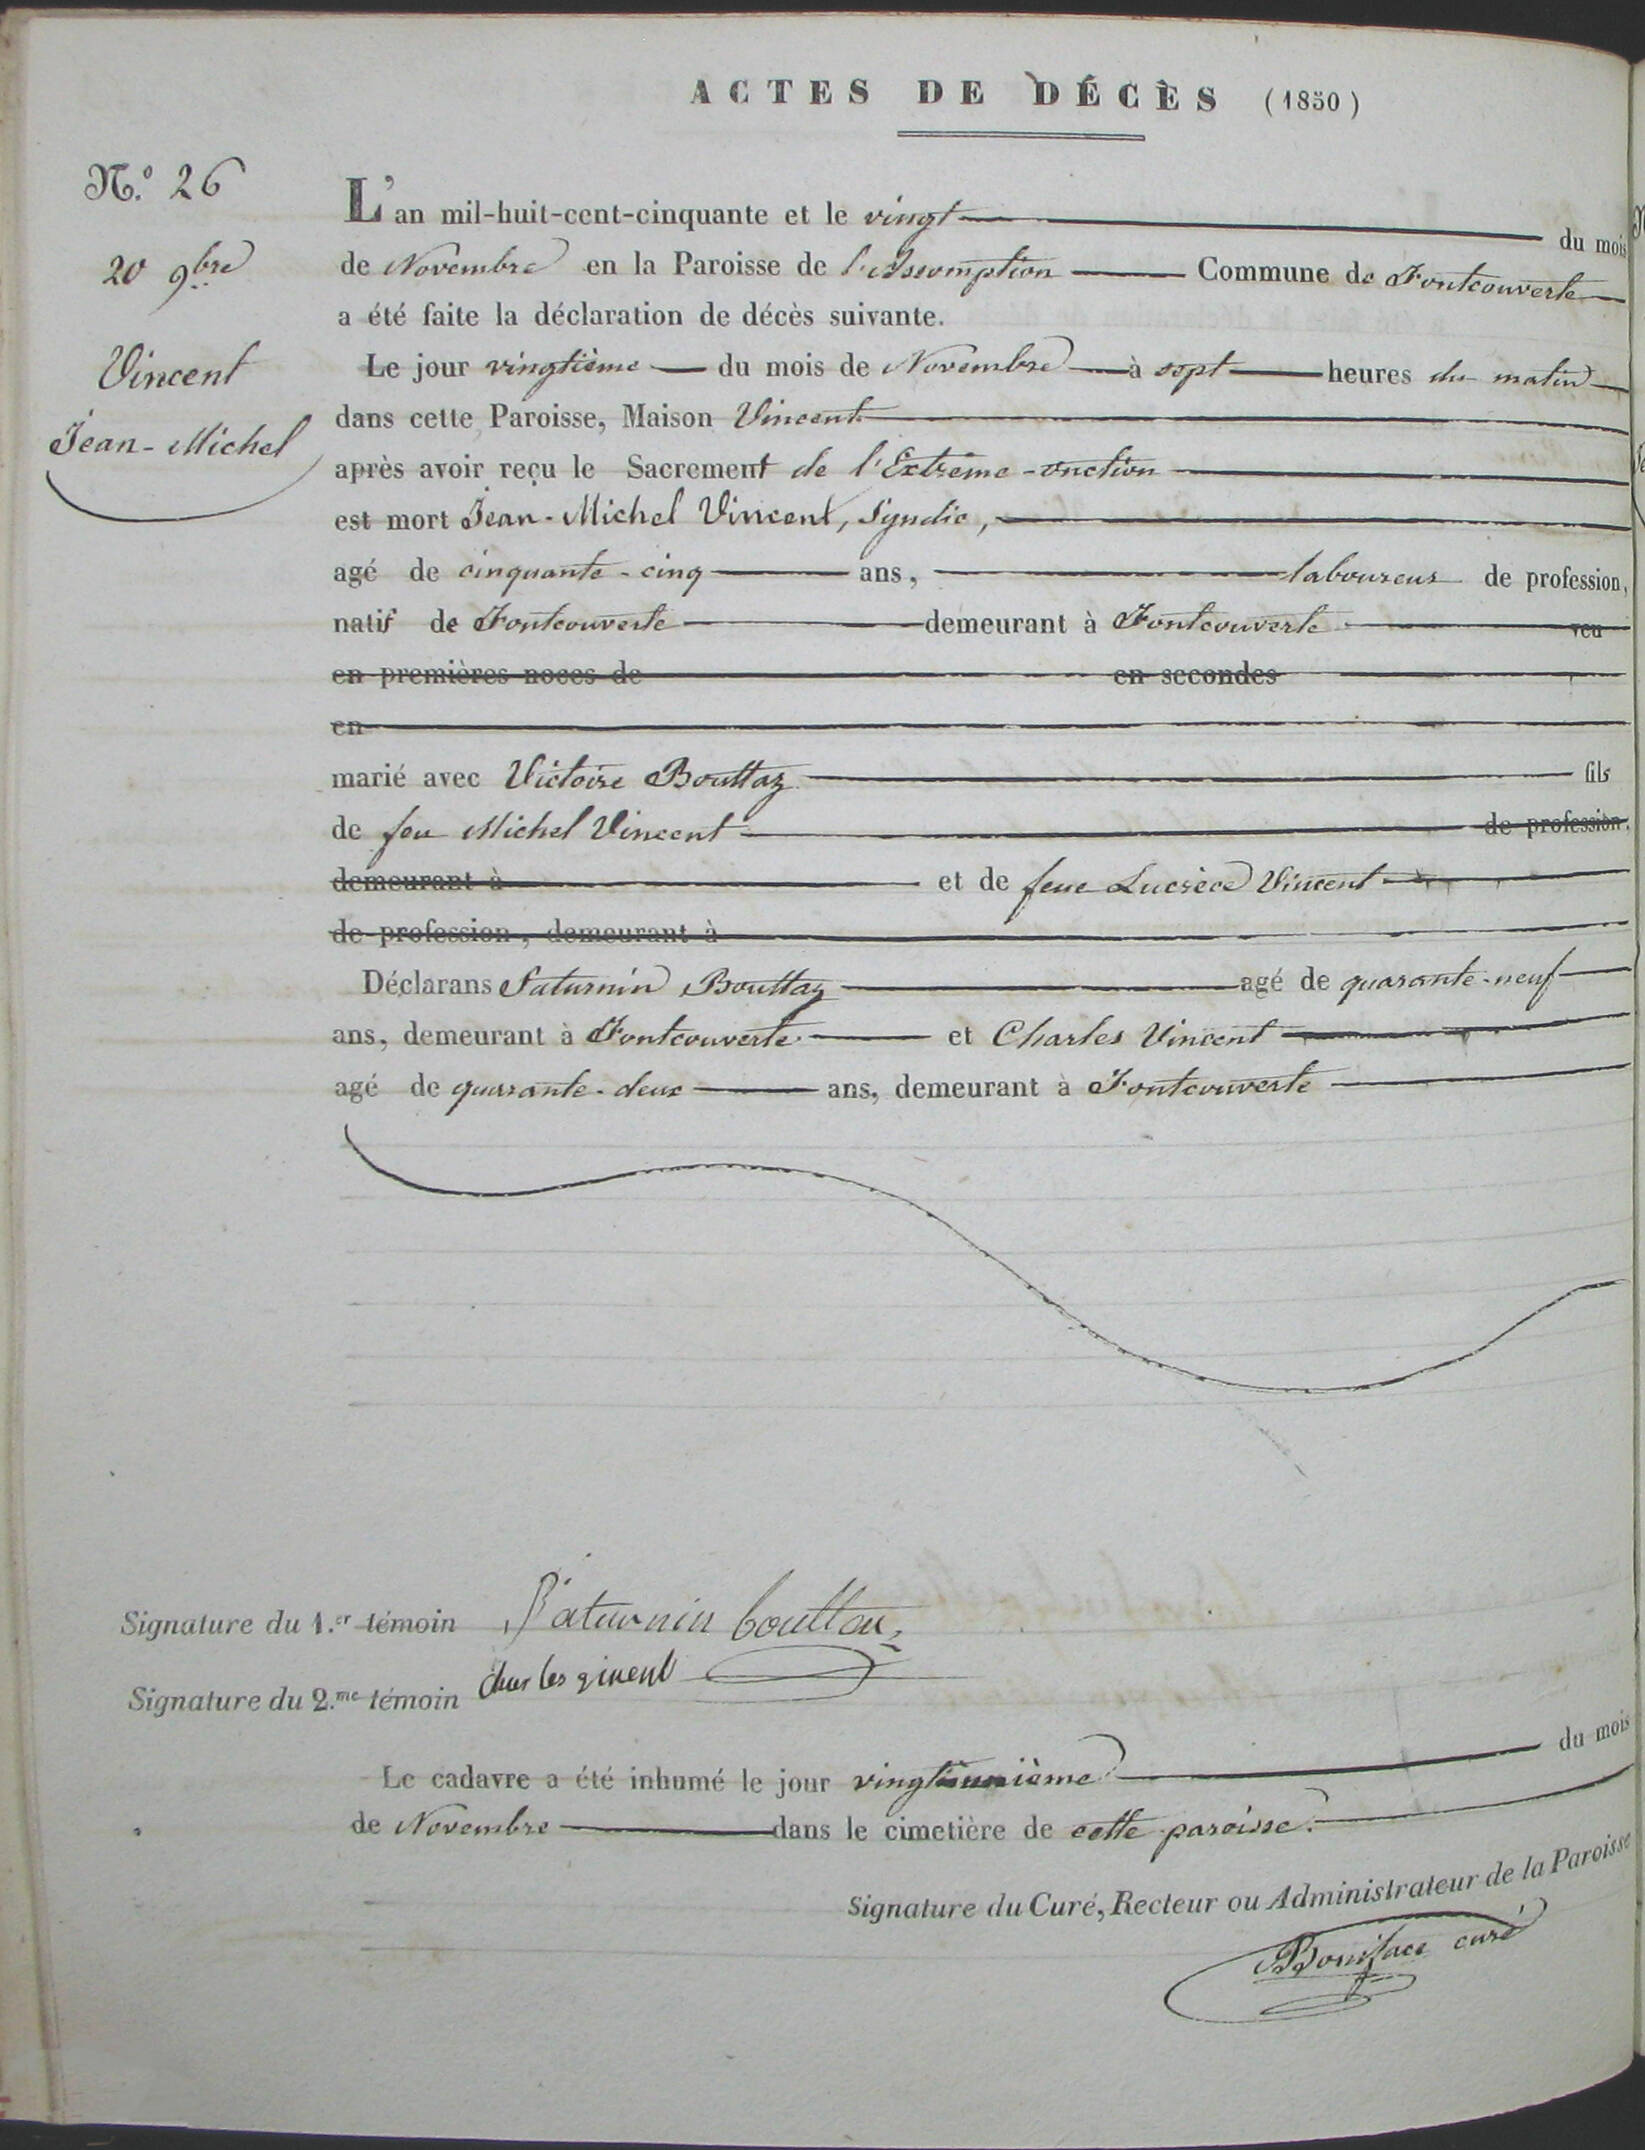 ACTES DE DÉCÈS (1850)
N.o 26
20 9bre
Vincent
Jean-Michel
L'an mil-huit-cent-cinquante et le vingt du mois
de Novembre en la Paroisse de l'Assomption Commune de Fontcouverte
a été faite la déclaration de décès suivante.
Le jour vingtième du mois de Novembre à sept heures du matin
dans cette Paroisse, Maison Vincent
après avoir reçu le Sacrement de l'Extrême-onction
est mort Jean-Michel Vincent, Syndic,
agé de cinquante-cinq ans, laboureur de profession,
natif de Fontcouverte demeurant à Fontcouverte veu
en premières noces de en secondes
en
marié avec Victoire Bouttaz fils
de feu Michel Vincent de profession,
demeurant à et de feue Lucrèce Vincent
de profession, demeurant à
Déclarans Saturnin Bouttaz agé de quarante-neuf
ans, demeurant à Fontcouverte et Charles Vincent
agé de quarante-deux ans, demeurant à Fontcouverte
Signature du 1.er témoin Saturnin bouttaz
Signature du 2.me témoin Charles
Le cadavre a été inhumé le jour vingtunième du mois
de Novembre dans le cimetière de cette paroisse.
Signature du Curé, Recteur ou Administrateur de la Paroisse
Boniface curé